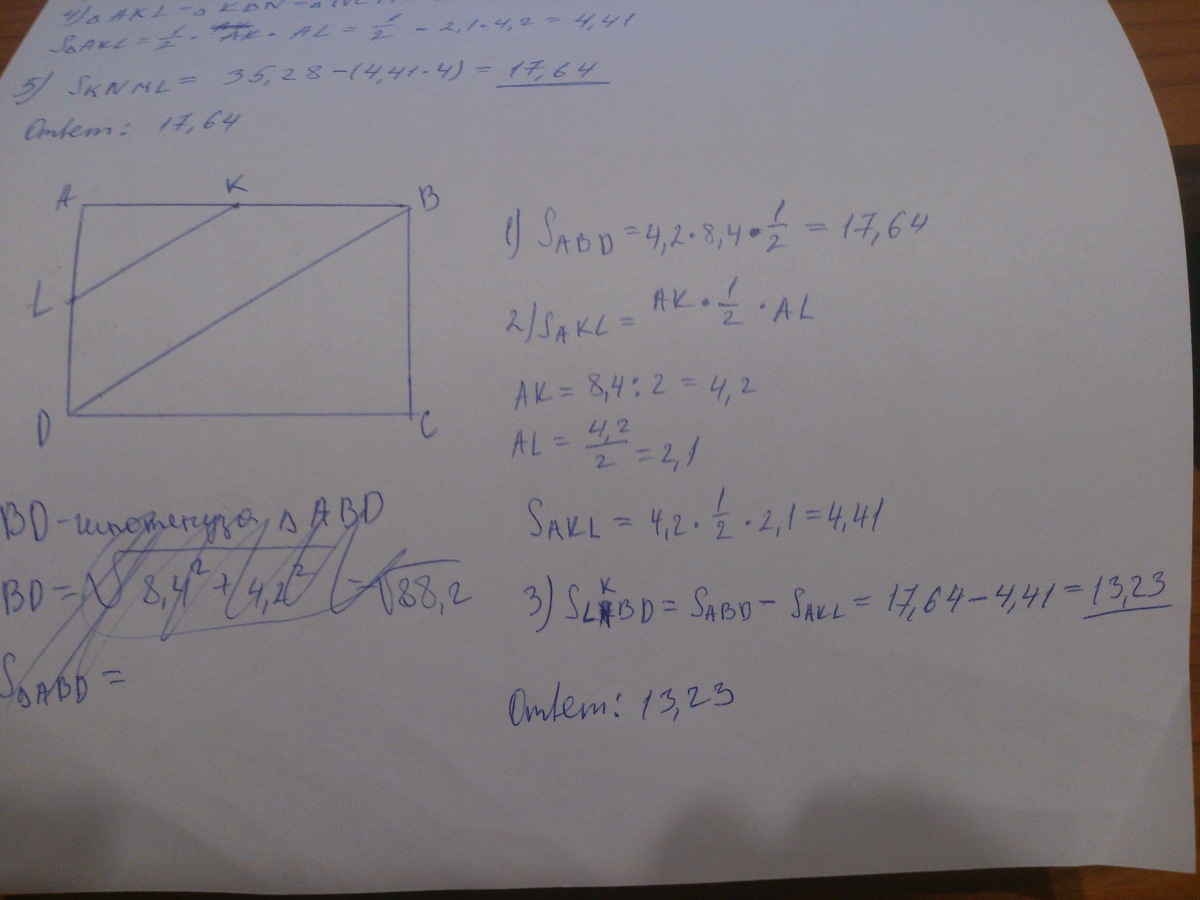 4) △AKL = △KBN = △
S△AKL = 1/2 · AK · AL = 1/2 - 2,1 · 4,2 = 4,41
5) SKNML = 35,28 - (4,41 · 4) = 17,64
Ответ: 17,64
A K B
L
D C
1) SABD = 4,2 · 8,4 · 1/2 = 17,64
2) SAKL = AK · 1/2 · AL
AK = 8,4 : 2 = 4,2
AL = 4,2/2 = 2,1
SAKL = 4,2 · 1/2 · 2,1 = 4,41
3) SLKBD = SABD - SAKL = 17,64 - 4,41 = 13,23
Ответ: 13,23
BD - гипотенуза △ABD
BD = √8,4² + 4,2² = √88,2
S△ABD =